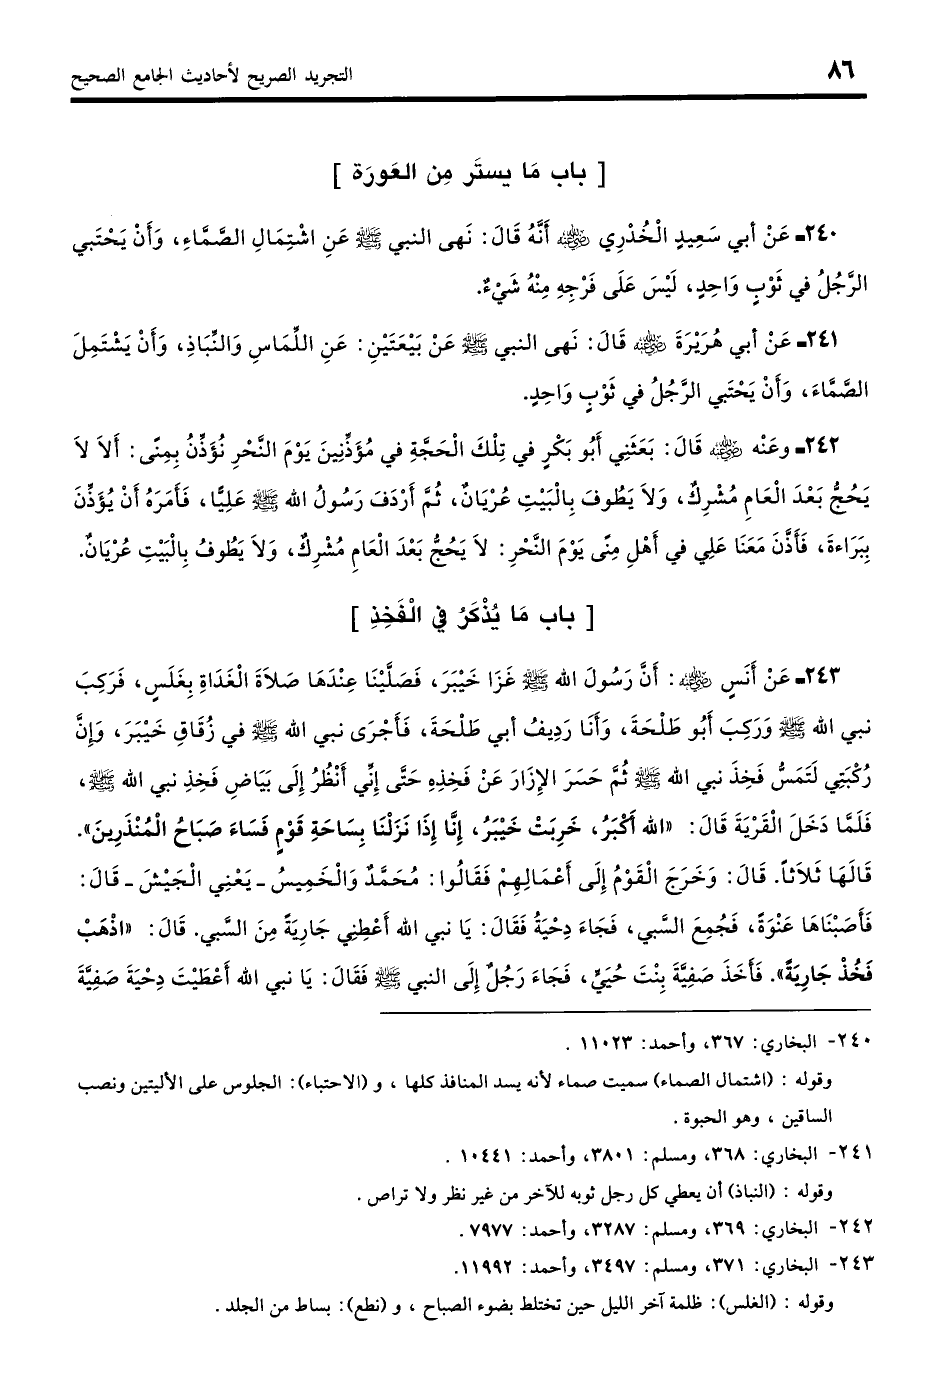 ٨٦
التجريد الصريح لأحاديث الجامع الصحيح
[ باب مَا يستَر مِن العَورَة ]
٢٤٠ـ عَنْ أبي سَعِيدٍ الْخُدْرِي رضي الله عنه أَنَّهُ قَالَ: نَهى النبي ﷺ عَنِ اشْتِمَالِ الصَّمَّاءِ، وَأَنْ يَحْتَبي
الرَّجُلُ في ثَوْبٍ وَاحِدٍ، لَيْسَ عَلَى فَرْجِهِ مِنْهُ شَيْءٌ.
٢٤١ـ عَنْ أبي هُرَيْرَةَ رضي الله عنه قَالَ: نَهى النبي ﷺ عَنْ بَيْعَتَيْنِ: عَنِ اللِّمَاسِ وَالنِّبَاذِ، وَأَنْ يَشْتَمِلَ
الصَّمَّاءَ، وَأَنْ يَحْتَبي الرَّجُلُ في ثَوْبٍ وَاحِدٍ.
٢٤٢ـ وعَنْه رضي الله عنه قَالَ: بَعَثَنِي أَبُو بَكْرٍ في تِلْكَ الْحَجَّةِ في مُؤَذِّنِينَ يَوْمَ النَّحْرِ نُؤَذِّنُ بِمِنًى: أَلاَ لاَ
يَحُجُّ بَعْدَ الْعَامِ مُشْرِكٌ، وَلاَ يَطُوفَ بِالْبَيْتِ عُرْيَانٌ، ثُمَّ أَرْدَفَ رَسُولُ الله ﷺ عَلِيًّا، فَأَمَرَهُ أَنْ يُؤَذِّنَ
بِبَرَاءةَ، فَأَذَّنَ مَعَنَا عَلِي في أَهْلِ مِنًى يَوْمَ النَّحْرِ: لاَ يَحُجُّ بَعْدَ الْعَامِ مُشْرِكٌ، وَلاَ يَطُوفُ بِالْبَيْتِ عُرْيَانٌ.
[ باب مَا يُذْكَرُ في الْفَخِذِ ]
٢٤٣ـ عَنْ أَنَسٍ رضي الله عنه: أَنَّ رَسُولَ الله ﷺ غَزَا خَيْبَرَ، فَصَلَّيْنَا عِنْدَهَا صَلاَةَ الْغَدَاةِ بِغَلَسٍ، فَرَكِبَ
نبي الله ﷺ وَرَكِبَ أَبُو طَلْحَةَ، وَأَنَا رَدِيفُ أبي طَلْحَةَ، فَأَجْرَى نبي الله ﷺ في زُقَاقِ خَيْبَرَ، وَإِنَّ
رُكْبَتِي لَتَمَسُّ فَخِذَ نبي الله ﷺ ثُمَّ حَسَرَ الإِزَارَ عَنْ فَخِذِهِ حَتَّى إِنِّي أَنْظُرُ إِلَى بَيَاضِ فَخِذِ نبي الله ﷺ،
فَلَمَّا دَخَلَ الْقَرْيَةَ قَالَ: «الله أَكْبَرُ، خَرِبَتْ خَيْبَرُ، إِنَّا إِذَا نَزَلْنَا بِسَاحَةِ قَوْمٍ فَسَاءَ صَبَاحُ الْمُنْذَرِينَ».
قَالَهَا ثَلاَثاً. قَالَ: وَخَرَجَ الْقَوْمُ إِلَى أَعْمَالِهِمْ فَقَالُوا: مُحَمَّدٌ وَالْخَمِيسُ ـ يَعْنِي الْجَيْشَ ـ قَالَ:
فَأَصَبْنَاهَا عَنْوَةً، فَجُمِعَ السَّبي، فَجَاءَ دِحْيَةُ فَقَالَ: يَا نبي الله أَعْطِنِي جَارِيَةً مِنَ السَّبي. قَالَ: «اذْهَبْ
فَخُذْ جَارِيَةً». فَأَخَذَ صَفِيَّةَ بِنْتَ حُيَيٍّ، فَجَاءَ رَجُلٌ إِلَى النبي ﷺ فَقَالَ: يَا نبي الله أَعْطَيْتَ دِحْيَةَ صَفِيَّةَ
٢٤٠- البخاري: ٣٦٧، وأحمد: ١١٠٢٣ .
وقوله : (اشتمال الصماء) سميت صماء لأنه يسد المنافذ كلها ، و (الاحتباء): الجلوس على الأليتين ونصب
الساقين ، وهو الحبوة .
٢٤١- البخاري: ٣٦٨، ومسلم: ٣٨٠١، وأحمد: ١٠٤٤١ .
وقوله : (النباذ) أن يعطي كل رجل ثوبه للآخر من غير نظر ولا تراص .
٢٤٢- البخاري: ٣٦٩، ومسلم: ٣٢٨٧، وأحمد: ٧٩٧٧ .
٢٤٣- البخاري: ٣٧١، ومسلم: ٣٤٩٧، وأحمد: ١١٩٩٢.
وقوله : (الغلس): ظلمة آخر الليل حين تختلط بضوء الصباح ، و (نطع): بساط من الجلد .